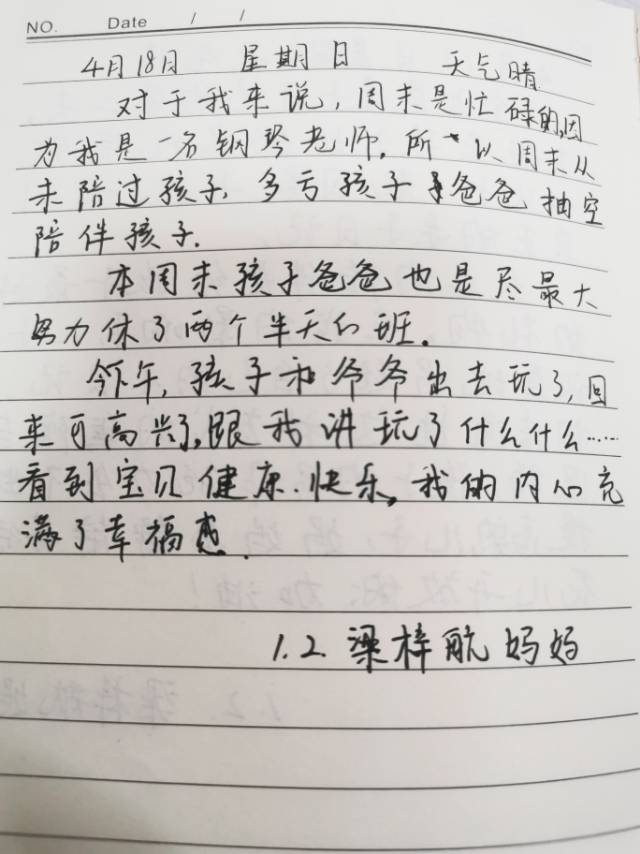 NO. Date / /
4月18日 星期日 天气晴
对于我来说，周末是忙碌的，因
为我是一名钢琴老师。所以周末从
未陪过孩子，多亏孩子爸爸抽空
陪伴孩子.
本周末孩子爸爸也是尽最大
努力休了两个半天的班.
今下午，孩子和爷爷出去玩了，回
来可高兴了，跟我讲玩了什么什么……
看到宝贝健康.快乐，我的内心充
满了幸福感.
1.2 梁梓航妈妈